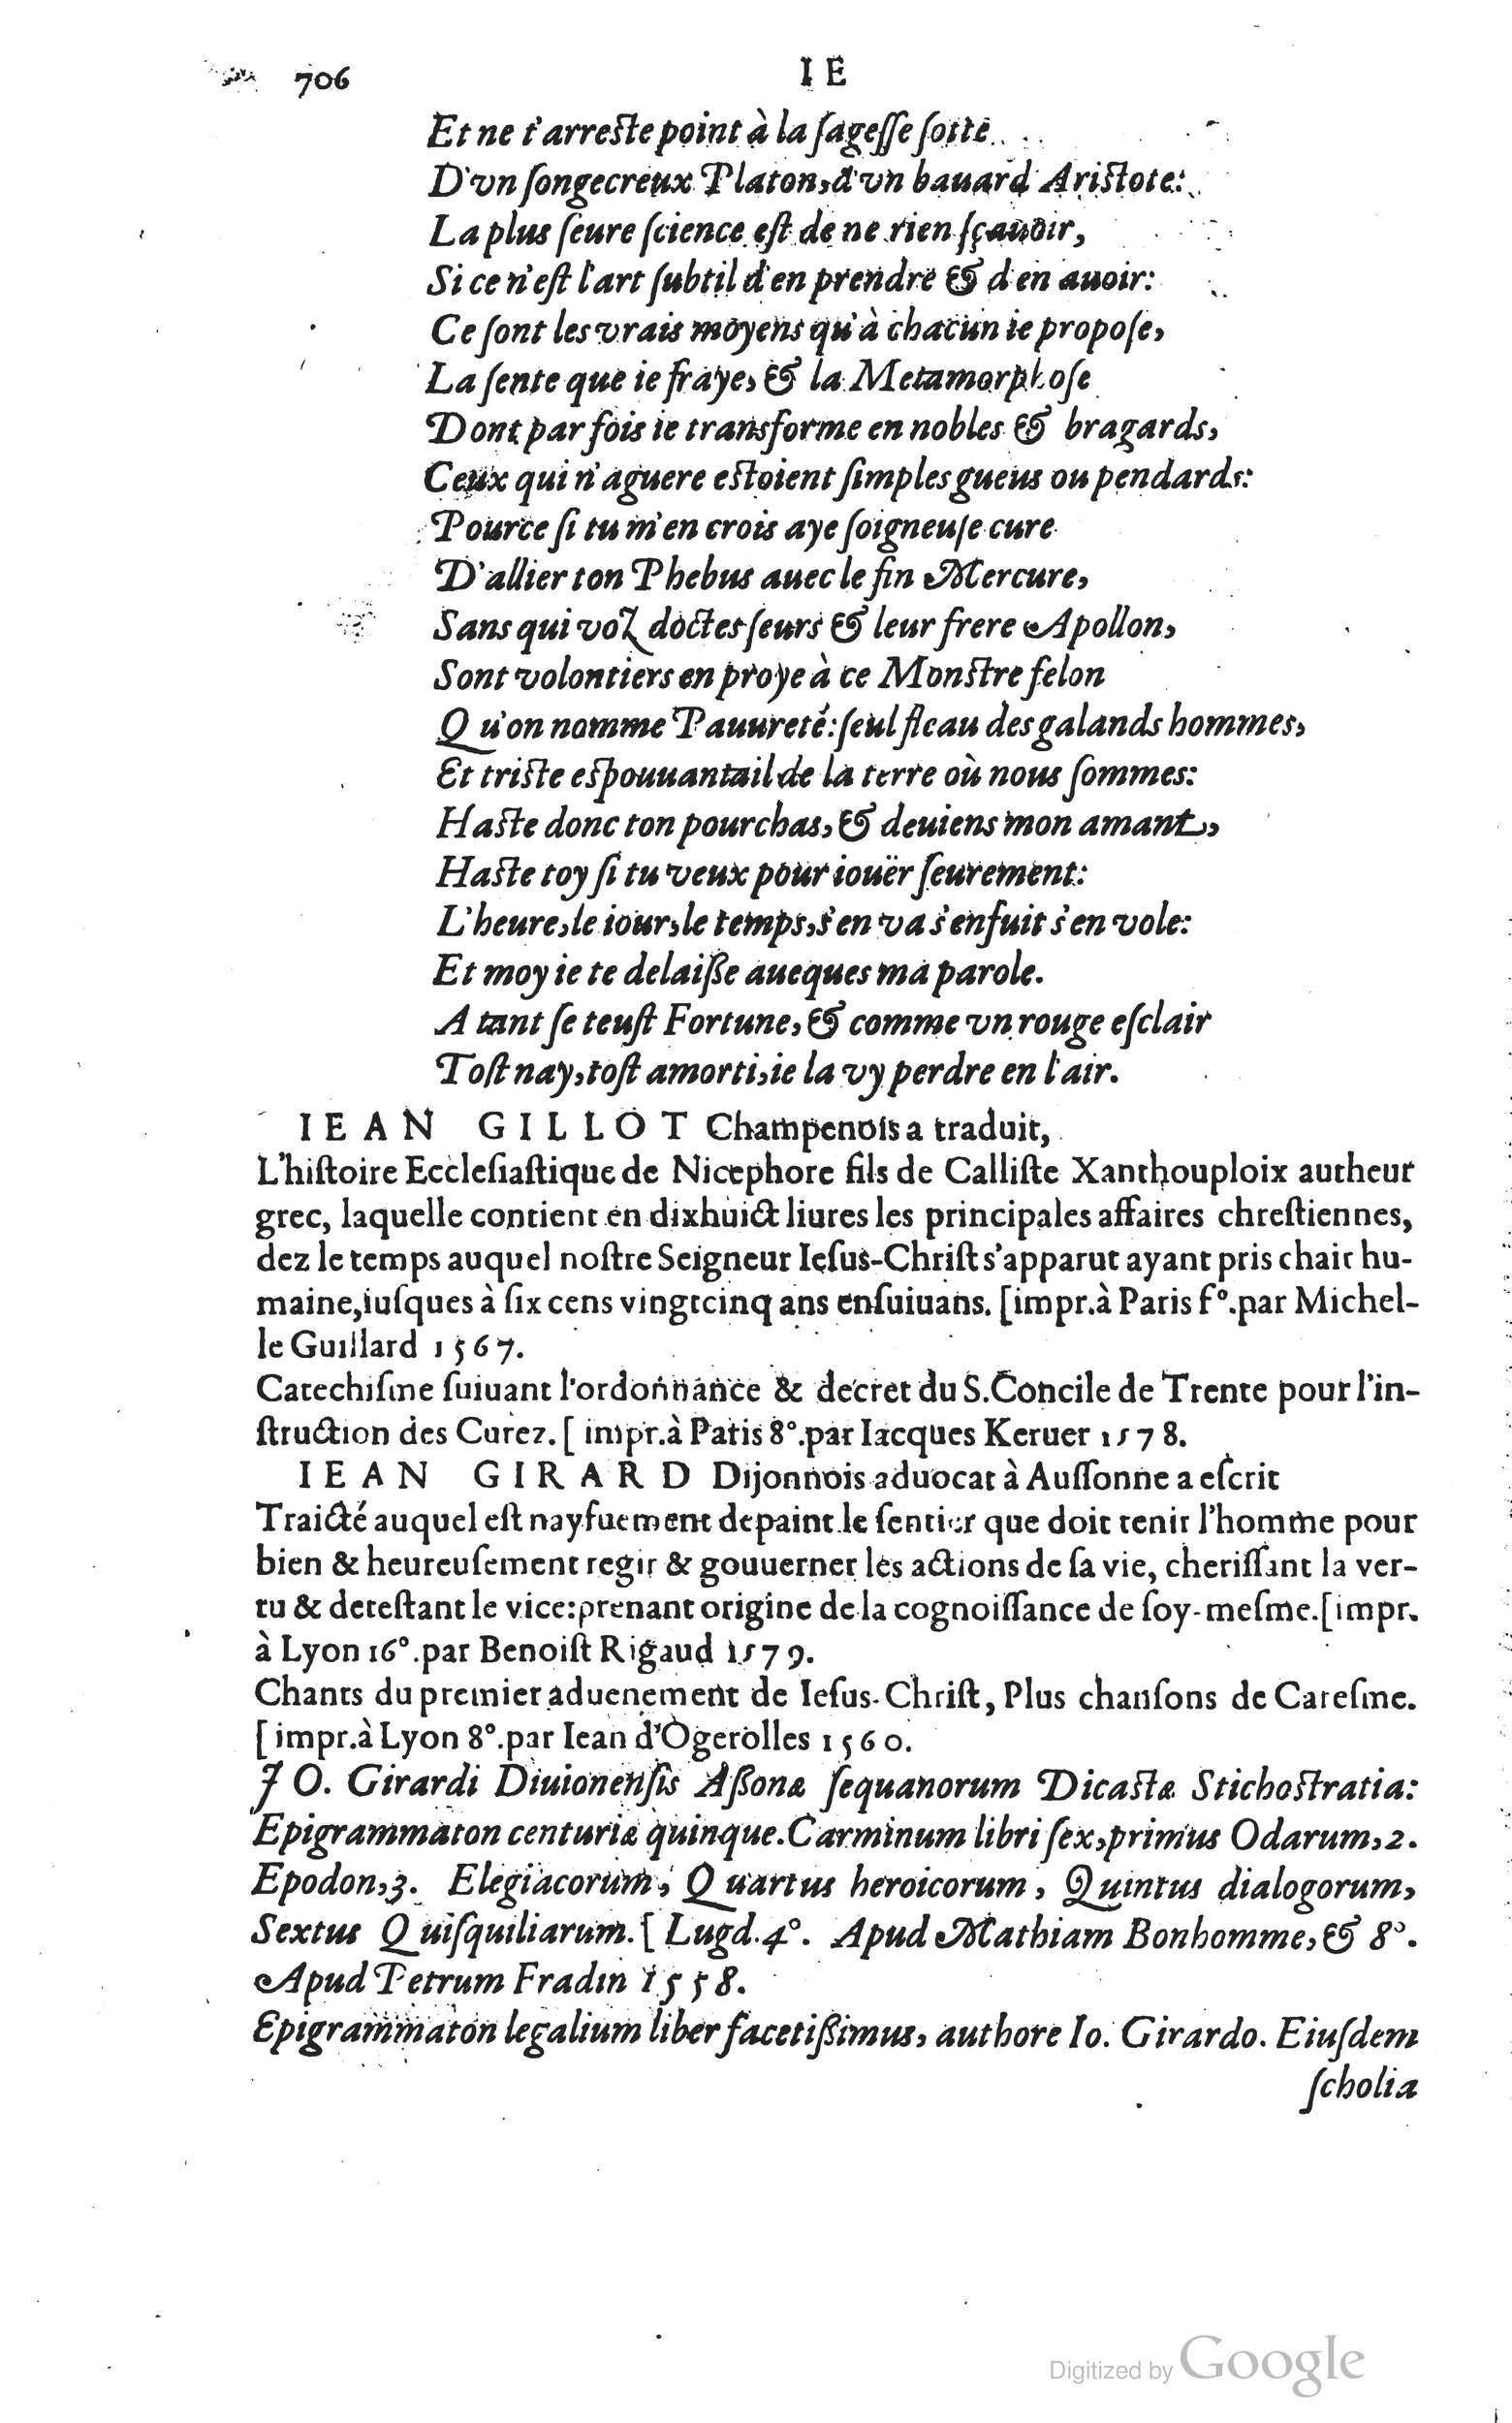 706 I E
Et ne t'arreſte point à la ſageſſe ſotte
D'vn ſongecreux Platon, d'vn bauard Ariſtote:
La plus ſeure ſcience eſt de ne rien ſçauoir,
Si ce n'eſt l'art ſubtil d'en prendre & d'en auoir:
Ce ſont les vrais moyens qu'à chacun ie propoſe,
La ſente que ie fraye, & la Metamorphoſe
Dont par fois ie transforme en nobles & bragards,
Ceux qui n'aguere eſtoient ſimples gueus ou pendards:
Pource ſi tu m'en crois aye ſoigneuſe cure
D'allier ton Phebus auec le fin Mercure,
Sans qui voz doctes ſeurs & leur frere Apollon,
Sont volontiers en proye à ce Monſtre felon
Qu'on nomme Pauureté: ſeul fleau des galands hommes,
Et triſte eſpouuantail de la terre où nous ſommes:
Haſte donc ton pourchas, & deuiens mon amant,
Haſte toy ſi tu veux pour iouër ſeurement:
L'heure, le iour, le temps, s'en va s'enfuit s'en vole:
Et moy ie te delaiſſe aueques ma parole.
A tant ſe teuſt Fortune, & comme vn rouge eſclair
Toſt nay, toſt amorti, ie la vy perdre en l'air.
IEAN GILLOT Champenois a traduit,
L'hiſtoire Eccleſiaſtique de Nicephore fils de Calliſte Xanthouploix autheur
grec, laquelle contient en dixhuict liures les principales affaires chreſtiennes,
dez le temps auquel noſtre Seigneur Ieſus-Chriſt s'apparut ayant pris chair hu-
maine, iuſques à ſix cens vingtcinq ans enſuiuans. [impr. à Paris f°. par Michel-
le Guillard 1567.
Catechiſme ſuiuant l'ordonnance & decret du S. Concile de Trente pour l'in-
ſtruction des Curez. [ impr. à Paris 8°. par Iacques Keruer 1578.
IEAN GIRARD Dijonnois aduocat à Auſſonne a eſcrit
Traicté auquel eſt nayfuement depaint le ſentier que doit tenir l'homme pour
bien & heureuſement regir & gouuerner les actions de ſa vie, cheriſſant la ver-
tu & deteſtant le vice: prenant origine de la cognoiſſance de ſoy-meſme. [impr.
à Lyon 16°. par Benoiſt Rigaud 1579.
Chants du premier aduenement de Ieſus-Chriſt, Plus chanſons de Careſme.
[impr. à Lyon 8°. par Iean d'Ogerolles 1560.
JO. Girardi Diuionenſis Aſſonæ ſequanorum Dicaſtæ Stichoſtratia:
Epigrammaton centuriæ quinque. Carminum libri ſex, primus Odarum, 2.
Epodon, 3. Elegiacorum, Quartus heroicorum, Quintus dialogorum,
Sextus Quiſquiliarum. [ Lugd. 4°. Apud Mathiam Bonhomme, & 8°.
Apud Petrum Fradin 1558.
Epigrammaton legalium liber facetiſſimus, authore Io. Girardo. Eiuſdem
ſcholia
Digitized by Google